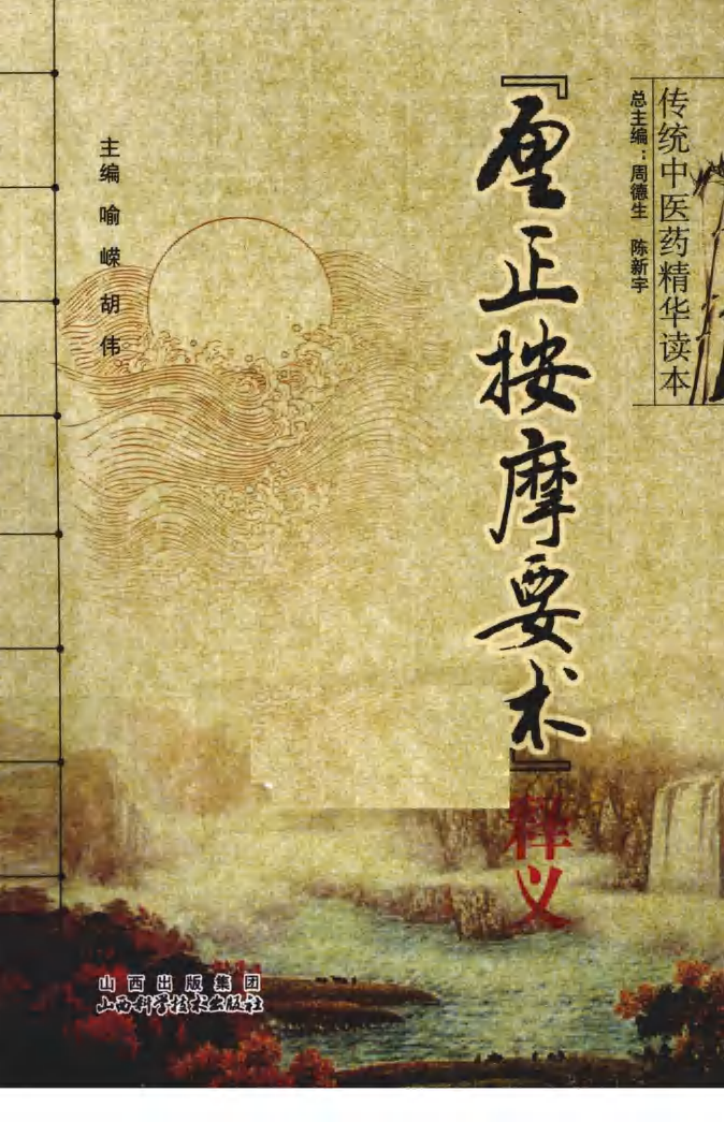 传统中医药精华读本
总主编：周德生 陈新宇
『厘正按摩要术』
释义
主编 喻嵘 胡伟
山西出版集团
山西科学技术出版社